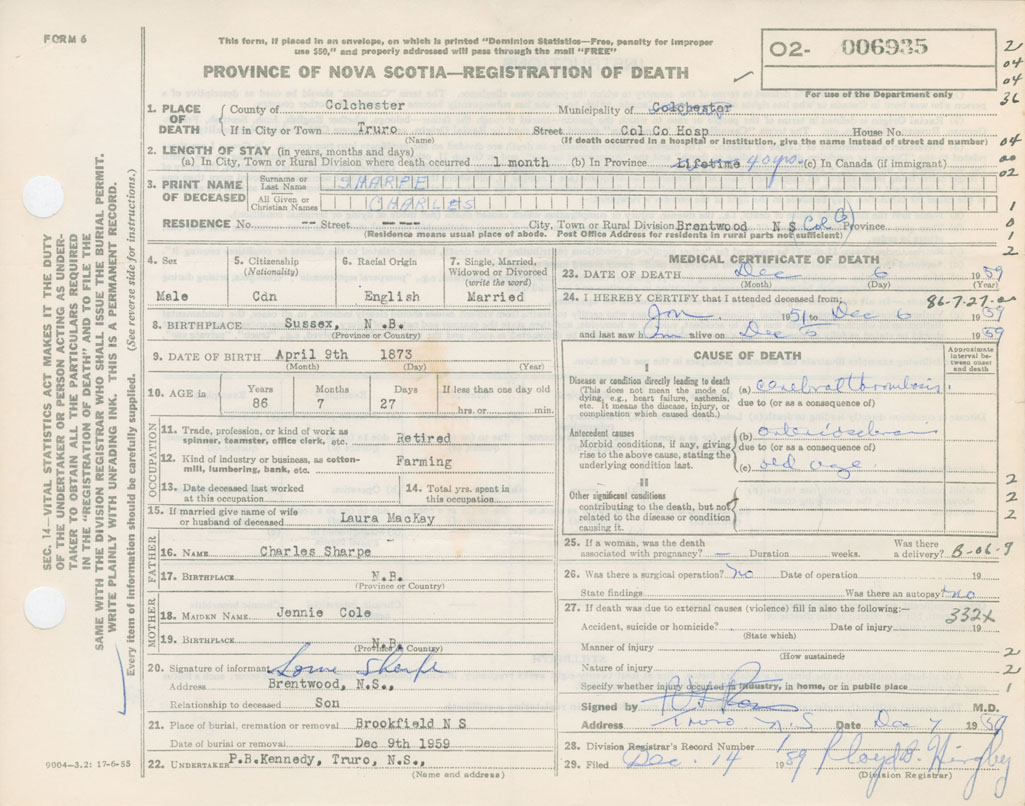 FORM 6
This form, if placed in an envelope, on which is printed "Dominion Statistics—Free, penalty for improper
use $50," and properly addressed will pass through the mail "FREE"
PROVINCE OF NOVA SCOTIA—REGISTRATION OF DEATH
02- 006935
For use of the Department only
2
04
04
36
04
00
02
1
0
1
2
SEC. 14—VITAL STATISTICS ACT MAKES IT THE DUTY
OF THE UNDERTAKER OR PERSON ACTING AS UNDER-
TAKER TO OBTAIN ALL THE PARTICULARS REQUIRED
IN THE "REGISTRATION OF DEATH" AND TO FILE THE
SAME WITH THE DIVISION REGISTRAR WHO SHALL ISSUE THE BURIAL PERMIT.
WRITE PLAINLY WITH UNFADING INK. THIS IS A PERMANENT RECORD.
Every item of information should be carefully supplied. (See reverse side for instructions.)
1. PLACE OF DEATH
County of Colchester Municipality of Colchester
If in City or Town Truro Street Col Co Hosp House No.
(Name) (If death occurred in a hospital or institution, give the name instead of street and number)
2. LENGTH OF STAY (in years, months and days)
(a) In City, Town or Rural Division where death occurred 1 month (b) In Province Lifetime 40 yrs. (c) In Canada (if immigrant)
3. PRINT NAME OF DECEASED
Surname or Last Name SHARPE
All Given or Christian Names CHARLES
RESIDENCE No. -- Street - --- City, Town or Rural Division Brentwood N S (Col Co) Province
(Residence means usual place of abode. Post Office Address for residents in rural parts not sufficient)
4. Sex
Male
5. Citizenship
(Nationality)
Cdn
6. Racial Origin
English
7. Single, Married,
Widowed or Divorced
(write the word)
Married
8. BIRTHPLACE Sussex, N .B.
(Province or Country)
9. DATE OF BIRTH April 9th 1873
(Month) (Day) (Year)
10. AGE in
Years Months Days If less than one day old
86 7 27 hrs. or min.
OCCUPATION
11. Trade, profession, or kind of work as
spinner, teamster, office clerk, etc. Retired
12. Kind of industry or business, as cotton-
mill, lumbering, bank, etc. Farming
13. Date deceased last worked
at this occupation
14. Total yrs. spent in
this occupation
15. If married give name of wife
or husband of deceased Laura MacKay
FATHER
16. NAME Charles Sharpe
17. BIRTHPLACE N.B.
(Province or Country)
MOTHER
18. MAIDEN NAME Jennie Cole
19. BIRTHPLACE N.B.
(Province or Country)
20. Signature of informant Lorne Sharpe
Address Brentwood, N.S.,
Relationship to deceased Son
21. Place of burial, cremation or removal Brookfield N S
Date of burial or removal Dec 9th 1959
22. UNDERTAKER P.B.Kennedy, Truro, N.S.,
(Name and address)
9004—3.2: 17-6-55
MEDICAL CERTIFICATE OF DEATH
23. DATE OF DEATH Dec 6 1959
(Month) (Day) (Year)
24. I HEREBY CERTIFY that I attended deceased from: 86-7-27-
Jan 1951 to Dec 6 1959
and last saw him alive on Dec 5 1959
CAUSE OF DEATH
Approximate
interval be-
tween onset
and death
I
Disease or condition directly leading to death
(This does not mean the mode of
dying, e.g., heart failure, asthenia,
etc. It means the disease, injury, or
complication which caused death.)
(a) cerebral thrombosis
due to (or as a consequence of)
Antecedent causes
Morbid conditions, if any, giving
rise to the above cause, stating the
underlying condition last.
(b) arteriosclerosis
due to (or as a consequence of)
(c) old age
II
Other significant conditions
contributing to the death, but not
related to the disease or condition
causing it.
2
2
2
25. If a woman, was the death
associated with pregnancy? — Duration weeks. Was there
a delivery? B-06-9
26. Was there a surgical operation? no Date of operation 19
State findings Was there an autopsy? no
27. If death was due to external causes (violence) fill in also the following:— 332X
Accident, suicide or homicide? Date of injury 19
(State which)
Manner of injury 2
(How sustained)
Nature of injury 2
Specify whether injury occurred in industry, in home, or in public place 1
Signed by M.D.
Address Truro N.S Date Dec 7 1959
28. Division Registrar's Record Number
29. Filed Dec. 14 1959
(Division Registrar)